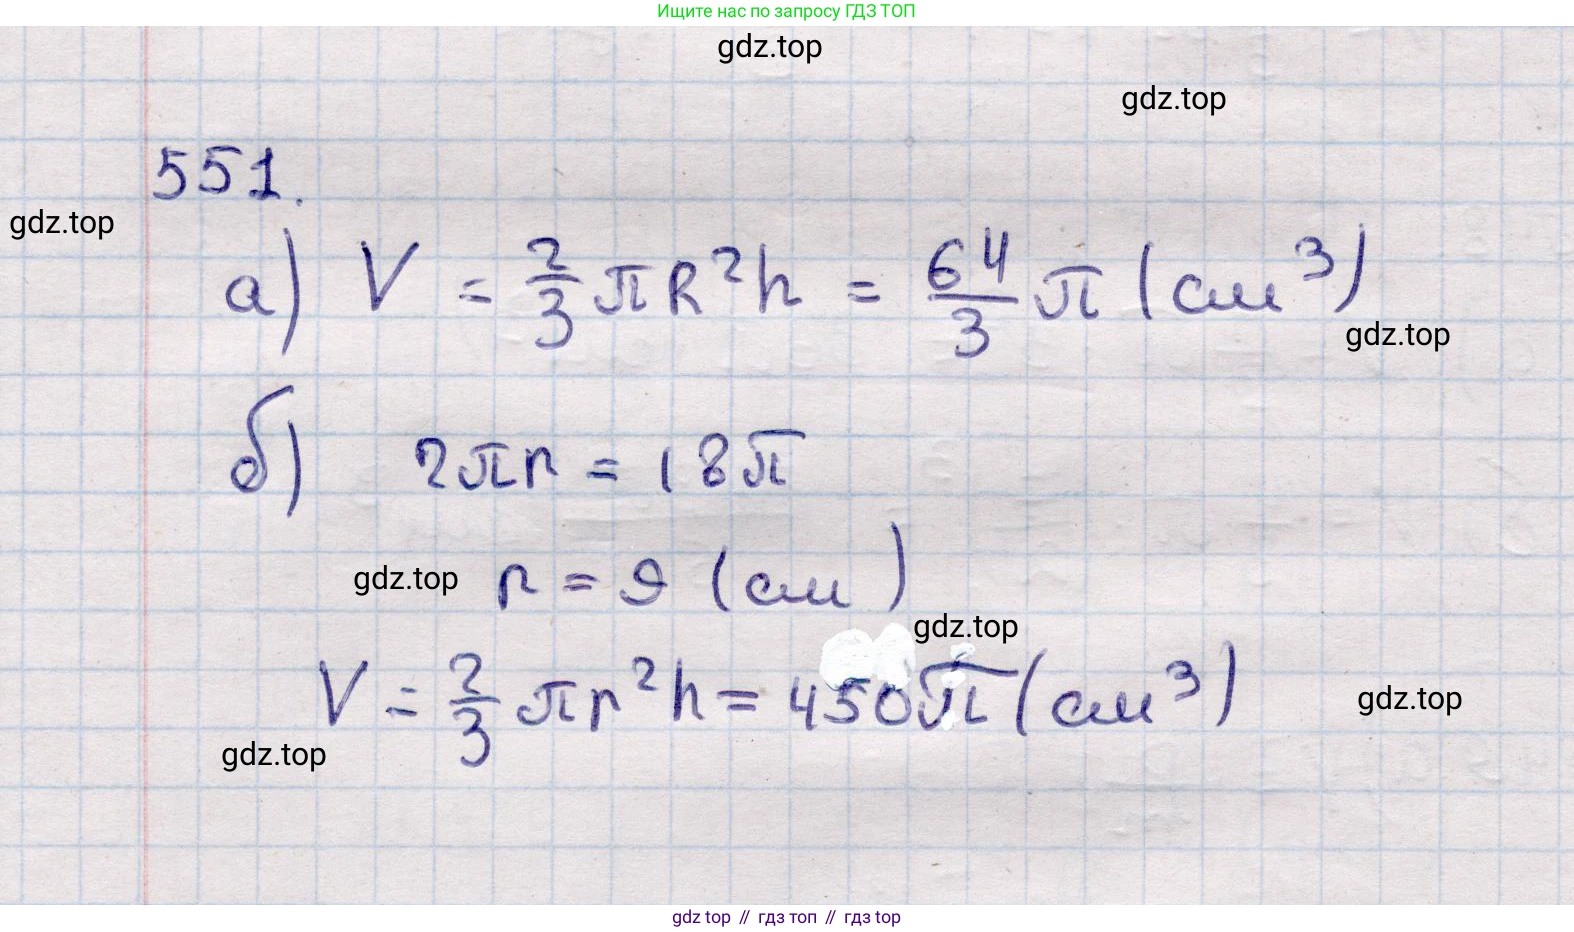 Ищите нас по запросу ГДЗ ТОП
gdz.top
gdz.top
551.
gdz.top
а) V = 2/3 πR²h = 64/3 π (см³)
gdz.top
б) 2πr = 18π
gdz.top r = 9 (см)
gdz.top
V = 2/3 πr²h = 450π (см³)
gdz.top
gdz.top
gdz top // гдз топ // гдз top